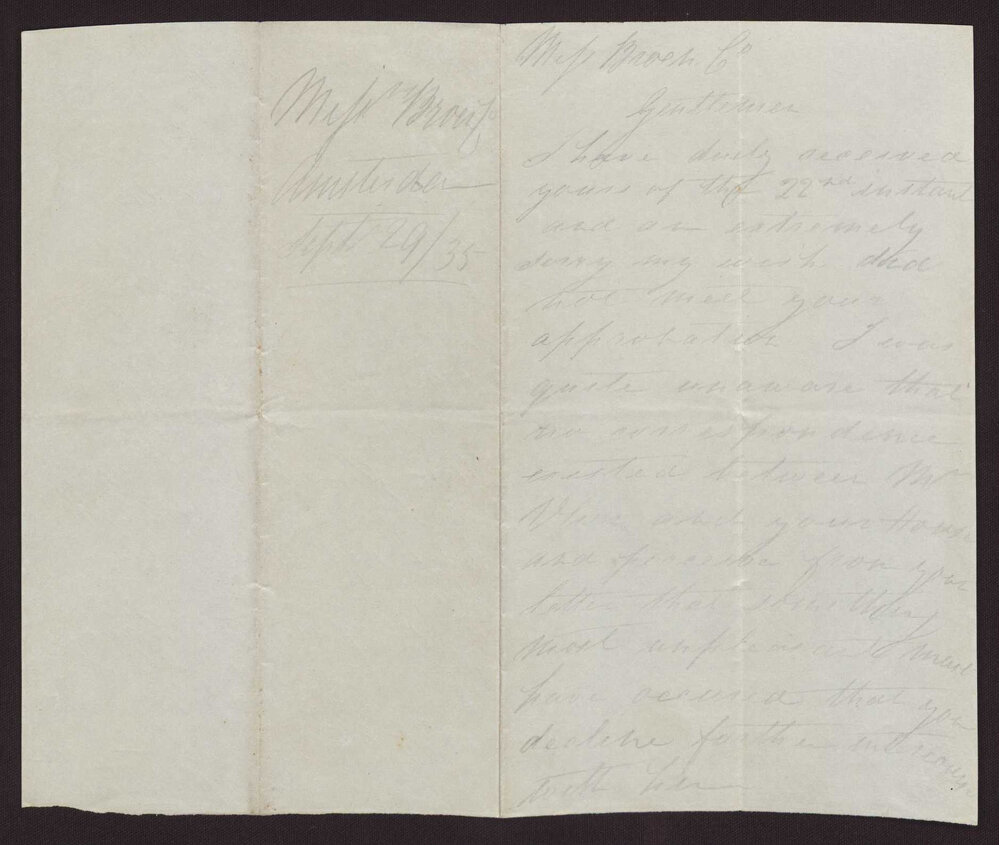 Messrs Brow
Amsterdam
Septr 29/35
Mess Co
Gentlemen
I have duly received
yours of the 22nd instant
and am extremely
sorry my wish did
not meet your
approbation I was
quite unaware that
no correspondence
existed between Mr
and your House
and perceive from your
letter that something
most unpleasant must
have occured that you
decline further
with her